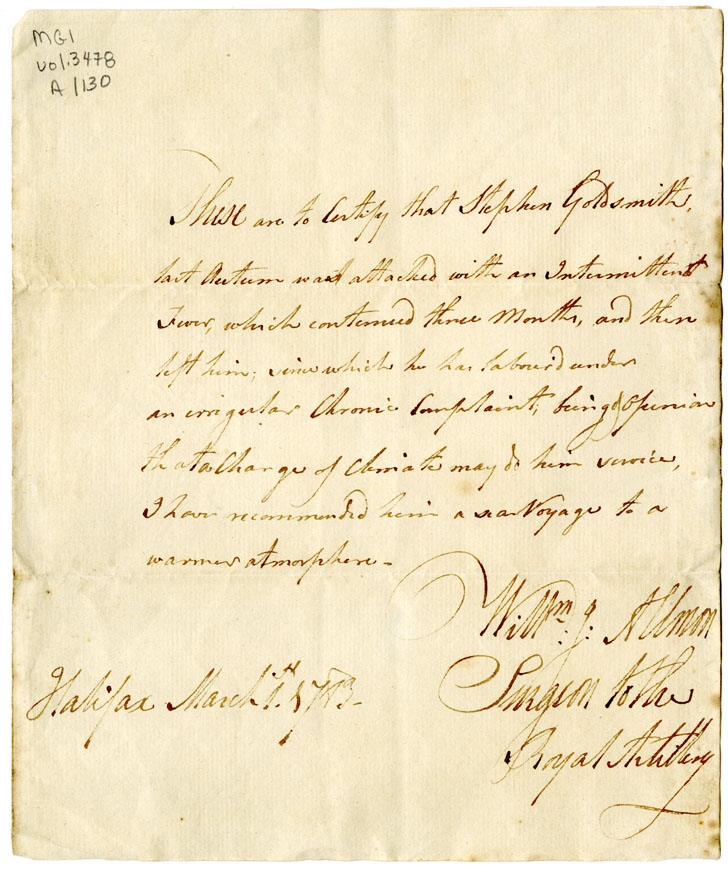 MG1
vol.3478
A/130
These are to Certify that Stephen Goldsmith,
last Autum was attacked with an Intermittent
Fever, which contenued three Months, and then
left him; since which he has labour'd under
an irregular Chronic Complaint; being of Openion
that a Change of Climate may do him service,
I have recommended him a sea Voyage to a
warmer atmosphere -
Willm. J: Allmon
Surgeon to the
Royal Artillery
Halifax March 1st.